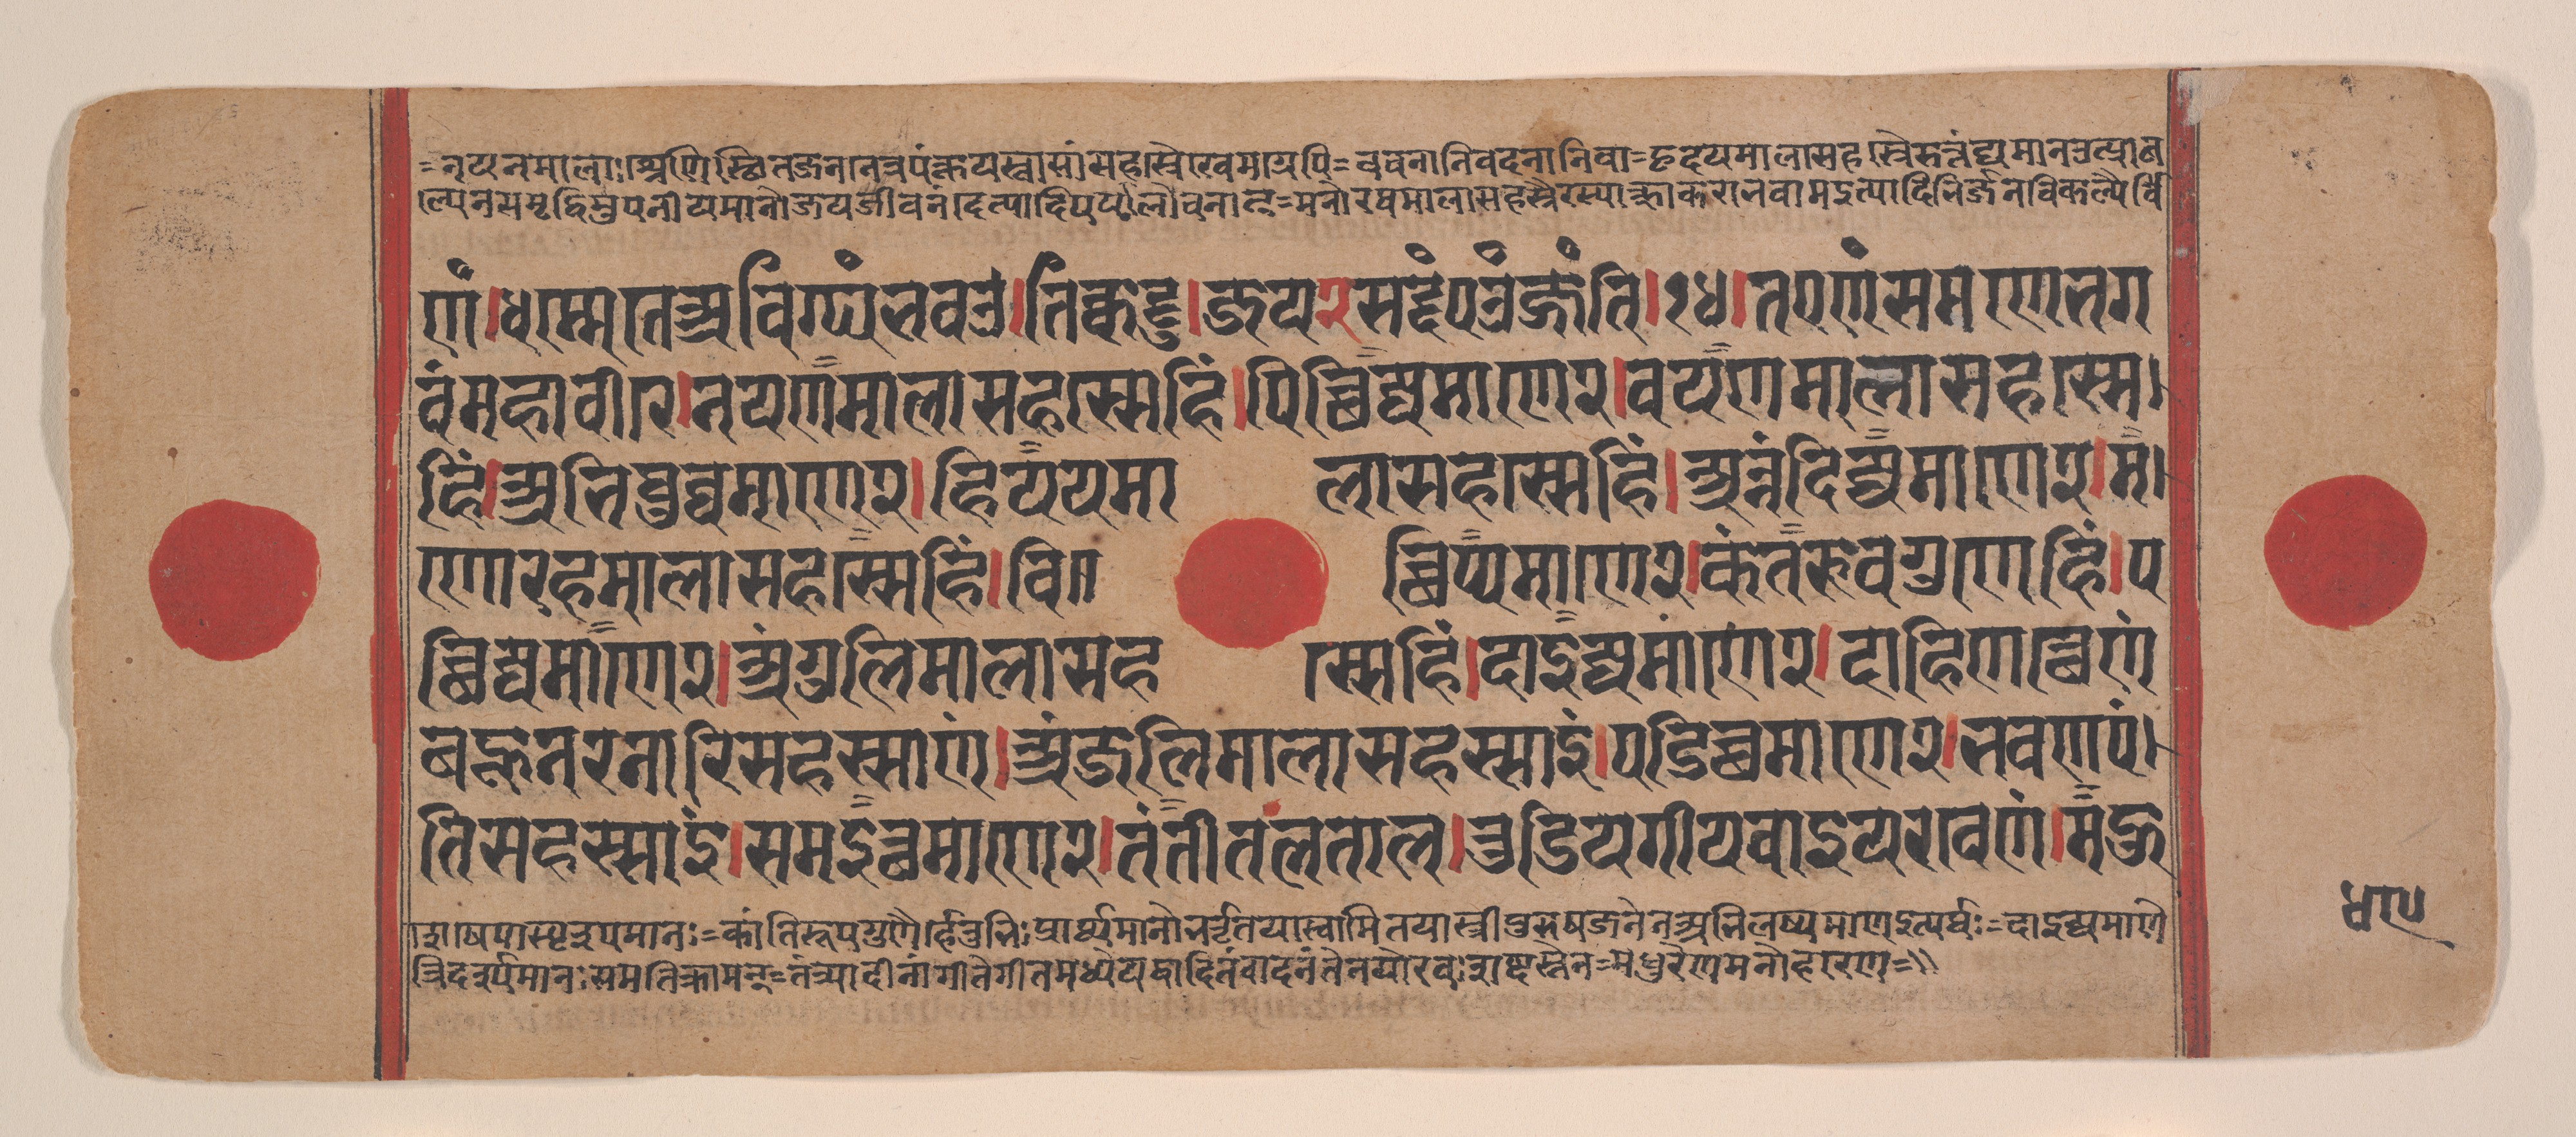 =नयनमालाःश्रेणिस्थितजनानेत्रपंक्तयस्तासांसहस्रैःएवमग्रेपि=वचनानिवदनानिवा=हृदयमालासहस्रैरुन्नंद्यमानउत्प्राब
ल्येनसमृद्धिमुपनीयमानोजयजीवनंदेत्यादिपर्यालोचनात्=मनोरथमालासहस्रैरस्याज्ञाकराभवामइत्यादिभिर्जनविकल्पैर्वि
णं।धम्मेतेअविग्घंभवउ।त्तिकट्टु।जय२सद्दंपउंजंति।१४।तएणंसमणेभग
वंमहावीरे।नयणमालासहस्सेहिं।पिच्छिज्जमाणे२।वयणमालासहस्से
हिं।अभिथुव्वमाणे२।हिययमालासहस्सेहिं।उन्नंदिज्जमाणे२।म
णोरहमालासहस्सेहिं।वि॥च्छिप्पमाणे२।कंतिरूवगुणेहिं।प
त्थिज्जमाणे२।अंगुलिमालासहस्सेहिं।दाइज्जमाणे२।दाहिणत्थेणं
बहूनरनारिसहस्साणं।अंजलिमालासहस्साइं।पडिच्छमाणे२।भवणपं
तिसहस्साइं।समइच्छमाणे२।तंतीतलताल।तुडियगीयवाइयरवेणं।महु
शेषेणस्पृश्यमानः=कांतिरूपगुणैर्हेतुभिःप्रार्थ्यमानोभर्तृतयास्वामितयास्त्रीपुरुषजनेनअभिलष्यमाणइत्यर्थः=दाइज्जमाणे
त्तिदर्श्यमानःसमतिक्रामन्=तंत्र्यादीनांगीतेगीतमध्येयद्वादितंवादनंतेनयोरवःशब्दस्तेन=मधुरेणमनोहरेण=॥